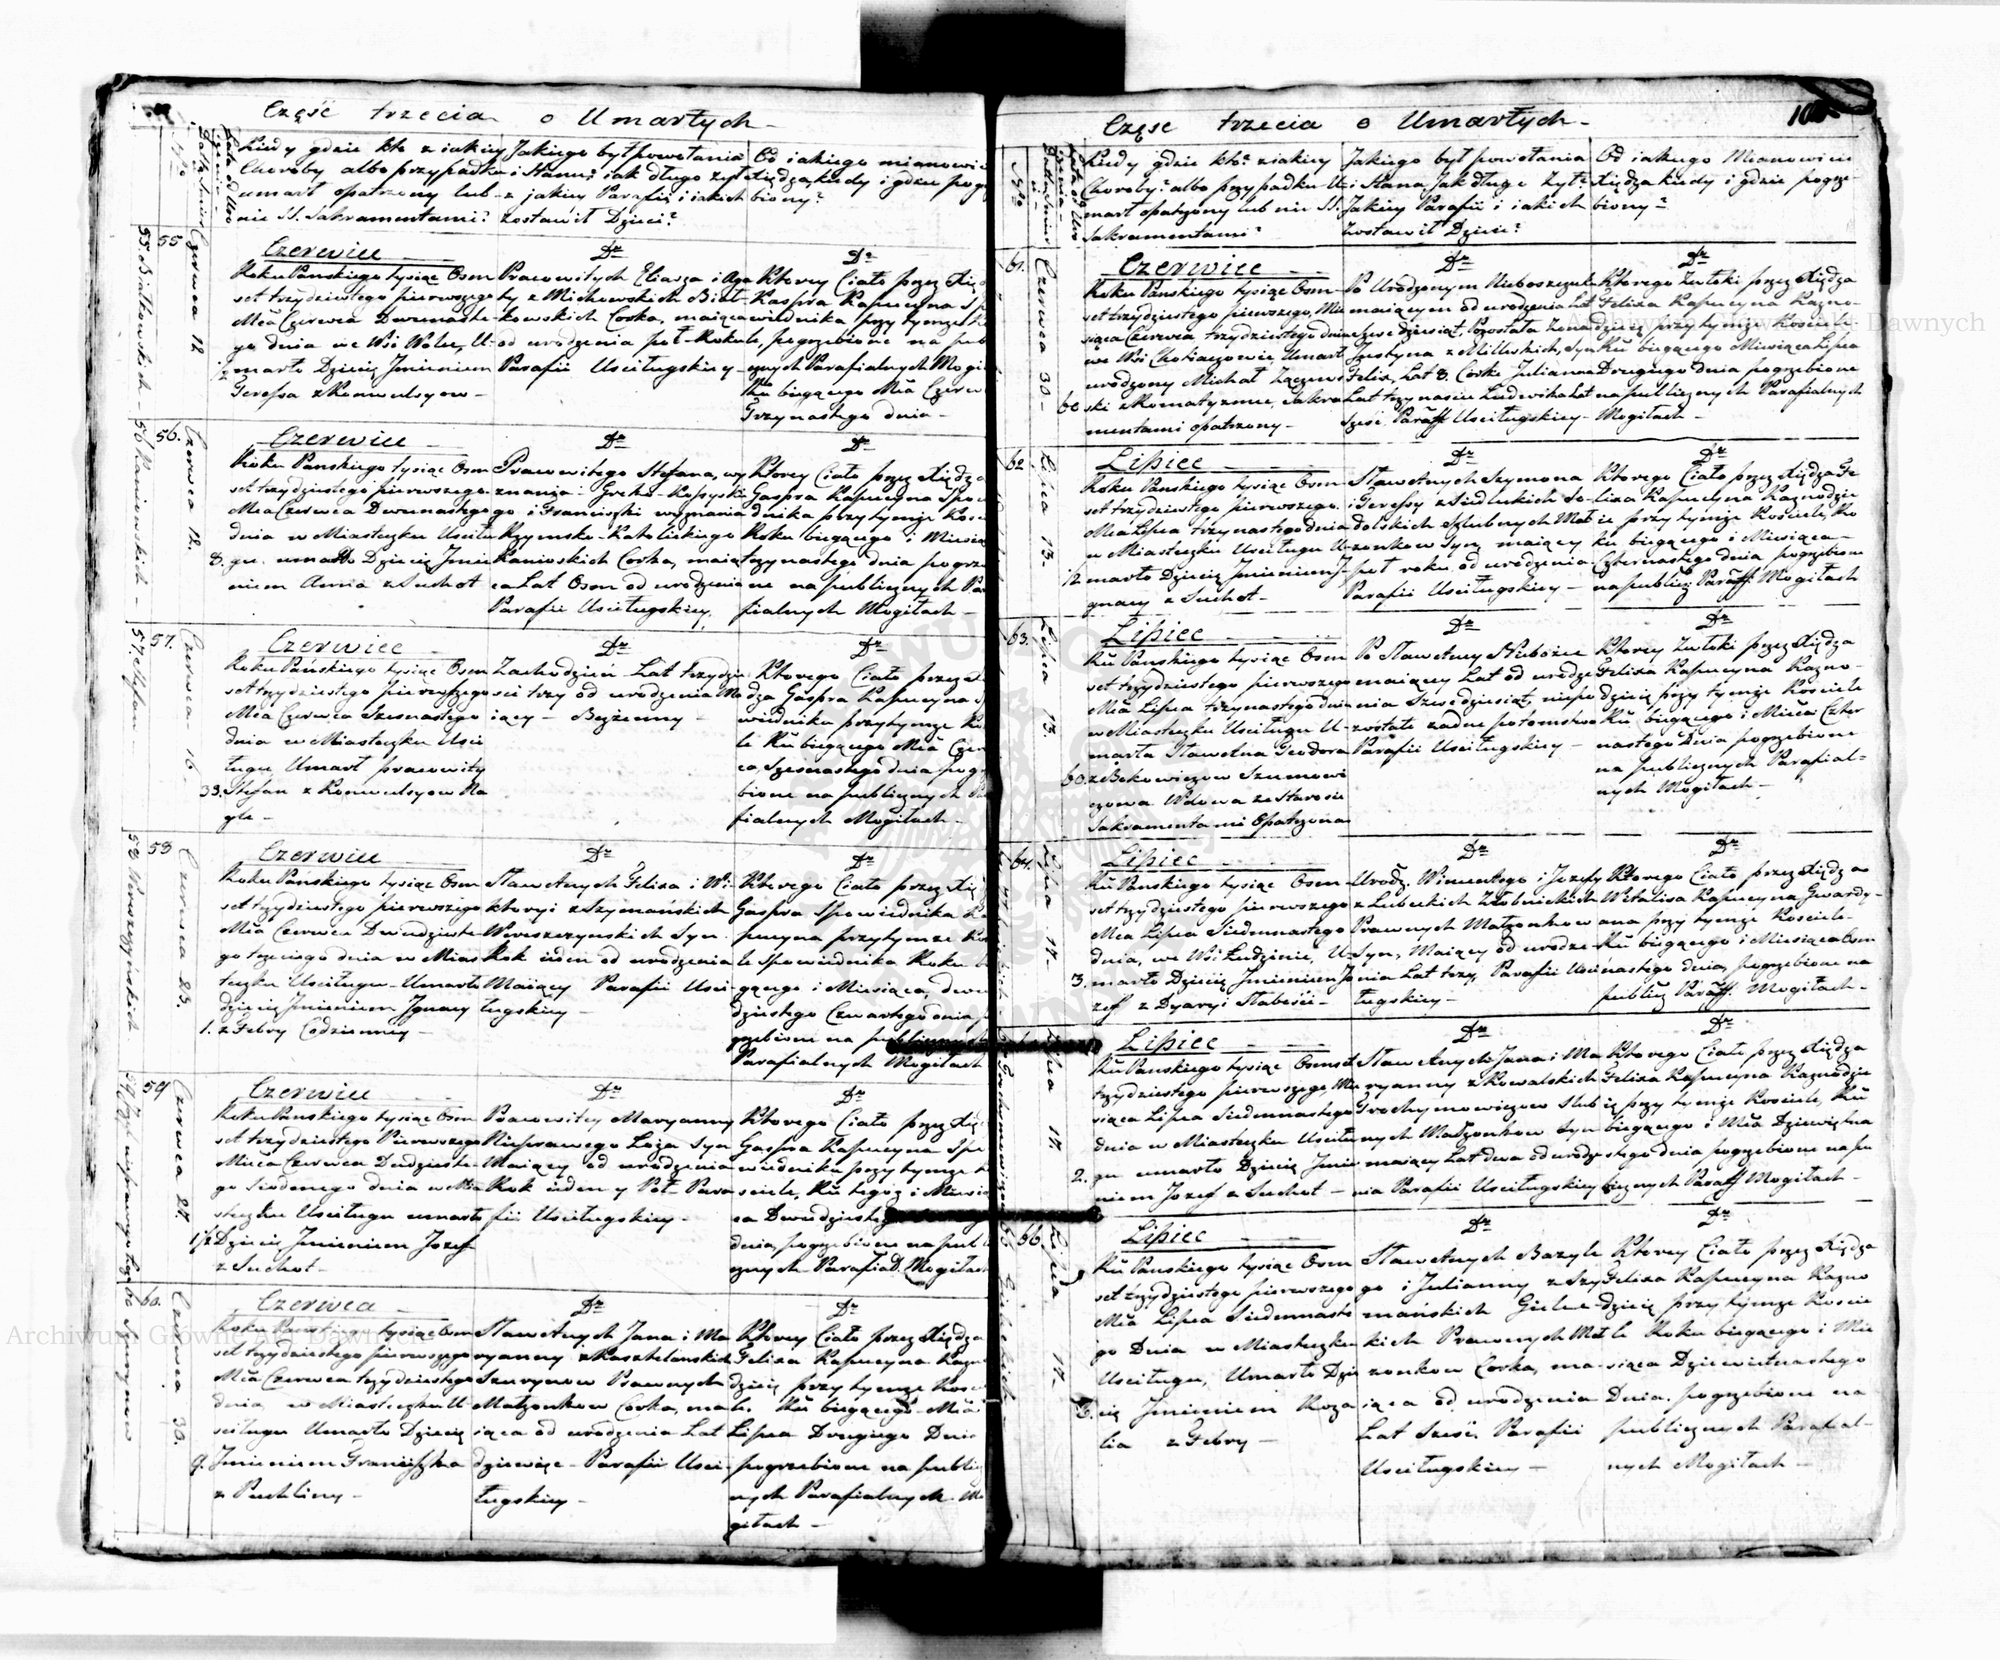 Część trzecia o Umarłych
Kiedy gdzie kto z iakiey
Choroby albo przypadku
umarł opatrzony lub
nie SS. Sakramentami?
Jakiego był powołania
i Stanu; iak długo żył
z jakiey Parafii i iakich
zostawił Dzieci?
Od iakiego mianowicie
Xiędza, kiedy i gdzie pogrze
biony?
55 Białkowskich
55
Czerwca 12
Czerwiec
Roku Pańskiego tysiąc Osm
set trzydziestego pierwszego
Mca Czerwca Dwunaste-
go dnia we Wsi Wolce, U-
marło Dziecię Jmieniem
Teressa z Konwulsyow
Dto
Pracowitych Eliasza i Aga
ty z Michowskich Biał-
kowskich Corka, maiąca
od urodzenia poł-Roku
Parafii Usciługskiey
Dto
Ktorey Ciało przez Xię
Kaspra Kapucyna Sp
wiednika przy tymże K
le, pogrzebione na pub
cznych Parafialnych Mogi
Ru biegącego Mca Czerw
Trzynastego dnia
56 Kaniewskich
56.
Czerwca 12.
Czerwiec
Roku Pańskiego tysiąc Osm
set trzydziestego pierwszego
Mca Czerwca Dwunastego
dnia w Miasteczku Usciłu
8. gu umarło Dziecię Jmie
niem Anna z Suchot
Dto
Pracowitego Stefana, wy
znania Greko-Rossyski
go i Franciszki wyznania
Rzymsko-Katolickiego
Kaniowskich Corka, maią
ca Lat Osm od urodzenia
Parafii Usciługskiey.
Dto
Ktorey Ciało przez Xiędza
Gaspra Kapucyna Spow
dnika przy tymże Kosc
Roku biegącego i Miesią
trzynastego dnia pogrze
ne na publicznych Pa
fialnych Mogiłach
57. Stefan
57.
Czerwca 16
Czerwiec
Roku Pańskiego tysiąc Osm
set trzydziestego pierwszego
Mca Czerwca Szesnastego
dnia w Miasteczku Usci
ługu Umarł pracowity
33. Stefan z Konwulsyow Na
gle
Dto
Zachodzień Lat trzydzie
sci trzy od urodzenia Ma
iący Bezżenny
Dto
Ktorego Ciało przez Xię
dza Gaspra Kapucyna S
wiednika przy tymże K
le Ru biegącego Mca Czer
ca, Szesnastego dnia pog
bione na publicznych Pa
fialnych Mogiłach
58 Wereszczyńskich
58
Czerwca 23.
Czerwiec
Roku Pańskiego tysiąc Osm
set trzydziestego pierwszego
Mca Czerwca Dwudzieste
go trzeciego dnia w Mias
teczku Usciługu Umarło
dziecię Jmieniem Jgnacy
1. z Febry Codzienney
Dto
Sławetnych Felixa i Wi-
ktoryi z Szymańskich
Wereszczynskich Syn
Rok ieden od urodzenia
Maiący Parafii Usci
ługskiey
Dto
Ktorego Ciało przez Xię
Gaspra Spowiednika Ka
pucyna przy tymże Kos
le Spowiednika Roku b
gącego i Miesiąca, dwu
dziestego Czwartego dnia p
grzebione na publicznych
Parafialnych Mogiłach
59
Czerwca 27.
Czerwiec
Roku Pańskiego tysiąc Osm
set trzydziestego Pierwszego
Mieca Czerwca Dudzieste
go siodmego dnia w Mia
steczku Usciługu umarło
1½ Dziecię Jmieniem Jozef
z Suchot
Dto
Pracowitey Maryanny
Nieprawego Łoża Syn
Maiący od urodzenia
Rok ieden y Poł Para
fii Usciługskiey
Dto
Ktorego Ciało przez Xię
Gaspra Kapucyna Spo
wiednika przy tymże K
sciele, Ru tegoż i Miesią
ca Dwudziestego
dnia, pogrzebione na publ
cznych Parafial. Mogiłach
60 Szurynow
60.
Czerwca 30.
Czerwca
Roku Pańskiego tysiąc Osm
set trzydziestego pierwszego
Mca Czerwca trzydziestego
dnia, w Miasteczku U
sciługu Umarło Dziecię
9. Jmieniem Franciszka
z Puchliny
Dto
Sławetnych Jana i Ma
ryanny z Kasztelanskich
Szurynow Prawnych
Małżonkow Corka, ma
iąca od urodzenia Lat
dziewięc Parafii Usci
ługskiey
Dto
Ktorey Ciało przez Xiędza
Felixa Kapucyna Kazno
dzieię przy tymże Kosc
le. Ru biegącego Mca
Lipca Drugiego Dnia
pogrzebione na public
nych Parafialnych Mo
giłach
Częsc trzecia o Umarłych
10
Kiedy gdzie kto? z iakiey
Choroby? albo przypadku U
marł opatrzony lub nie SS.
Sakramentami?
Jakiego był powołania
i Stana, Jak długo żył?
Jakiey Parafii i iakich
Zostawił Dzieci?
Od iakiego Mianowicie
Xiędza kiedy i gdzie pogrze-
biony?
61.
Czerwca 30
Czerwiec
Roku Pańskiego tysiąc Osm-
set trzydziestego pierwszego, Mie
siąca Czerwca trzydziestego dnia
we Wsi Chotiaczowie Umarł
urodzony Michał Zaczew
60 ski z Romatyzmu, Sakra
mentami opatrzony
Dto
Po Urodzonym Nieboszczyku
maiącym od urodzenia Lat
Szescdziesiąt, Pozostała żona
Justyna z Millewskich, Syn
Felix, Lat 8. Corki Julianna
Lat trzynascie Ludwika Lat
Szesc. Paraff Usciługskiey
Dto
Ktorego Zwłoki przez Xiędza
Felixa Kapucyna Kazno-
dzieię przy tymże Kosciele
Ru biegącego Miesiąca Lipca
Drugiego dnia pogrzebione
na publicznych Parafialnych
Mogiłach
62
Lipca 13.
Lipiec
Roku Pańskiego tysiąc Osm-
set trzydziestego pierwszego
Mca Lipca trzynastego dnia
w Miasteczku Usciługu U-
½ marło Dziecię Jmieniem J-
gnacy z Suchot
Dto
Sławetnych Szymona
i Teressy z Siedleckich So-
dolskich Szlubnych Mał
żonkow Syn, maiący
poł roku, od urodzenia
Parafii Usciługskiey
Dto
Ktorego Ciało przez Xiędza Fe
lixa Kapucyna Kaznodzie
ię przy tymże Kosciele, Ro
ku biegącego i Miesiąca
Czternastego dnia pogrzebione
na publicz Paraff. Mogiłach
63.
Lipca 13.
Lipiec
Ru Pańskiego tysiąc Osm
set trzydziestego pierwszego
Mca Lipca trzynastego dnia
w Miasteczku Usciługu U-
marła Sławetna Teodora
60. z Bekowiczow Szumowi
czowa Wdowa ze Starosci
Sakramentami Opatrzona
Dto
Po Sławetney Nieboszce
maiącey Lat od urodze
nia Szescdziesiąt, niepo
zostało żadne potomstwo
Parafii Usciługskiey
Dto
Ktorey Zwłoki przez Xiędza
Felixa Kapucyna Kazno-
dzieię przy tymże Kosciele
Ru biegącego i Mieca Czter
nastego Dnia pogrzebione
na publicznych Parafial=
nych Mogiłach
64.
Lipca 17.
Lipiec
Ru Pańskiego tysiąc Osm-
set trzydziestego pierwszego
Mca Lipca Siedmnastego
dnia, we Wsi Łudzinie, U-
3. marło Dziecię Jmieniem Jo
zeff z Dyaryi Słabosci
Dto
Urodz. Wincentego i Jozefy
z Lubeckich Złobnickich
Prawnych Małżonkow
Syn, Maiący od urodze-
nia Lat trzy, Parafii Usci
ługskiey
Dto
Ktorego Ciało przez Xiędza
Witalisa Kapucyna Gwardy-
ana przy tymże Kosciele
Ru biegącego i Miesiąca Osm
nastego dnia, pogrzebione na
publicz Paraff. Mogiłach
Lipca 17.
Lipiec
Ru Pańskiego tysiąc Osmset
trzydziestego pierwszego, Mie
siąca Lipca Siedmnastego
dnia w Miasteczku Usciłu
2. gu umarło Dziecię Jmie
niem Jozef z Suchot
Dto
Sławetnych Jana i Ma
ryanny z Kowalskich
Trochymowiczow Slub
nych Małżonkow Syn
maiący Lat dwa od urodze
nia Parafii Usciługskiey
Dto
Ktorego Ciało przez Xiędza
Felixa Kapucyna Kaznodzie
ię przy tymże Kosciele, Ru
biegącego i Mca Dziewiętna
stego dnia pogrzebione na pu
bicznych Paraff Mogiłach
66.
Lipca 17.
Lipiec
Ru Pańskiego tysiąc Osm
set trzydziestego pierwszego
Mca Lipca Siedmnaste
go Dnia w Miasteczku
Usciługu, Umarło Dzie
6. cię Jmieniem Roza
lia z Febry
Dto
Sławetnych Bazyle
go i Julianny z Szy
mańskich Gielec
kich Prawnych Mał
żonkow Corka, ma
iąca od urodzenia
Lat Szesc. Parafii
Usciługskiey
Dto
Ktorey Ciało przez Xiędza
Felixa Kapucyna Kazno
dzieię przy tymże Koscie
le Roku biegącego i Mie
siąca Dziewietnastego
Dnia. pogrzebione na
publicznych Parafial-
nych Mogiłach
Archiwum Główne Akt Dawnych
Archiwum Główne Akt Dawnych